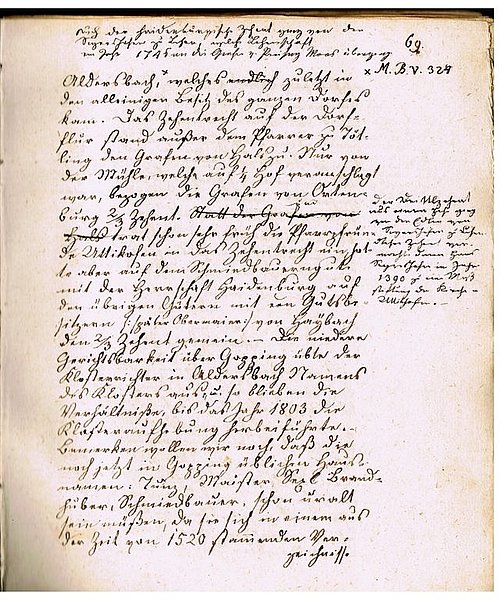 auch der haidenburgische Zehent ging von den
im Jahr 1745 an die Grafen Preysing Moos über
69.
x M. B. V. 324
Aldersbach, x welches endlich zuletzt in
den alleinigen Besitz des ganzen Dorfes
kam. Das Zehentrecht auf der Dorf-
flur stand außer dem Pfarrer zu Töt-
ling den Grafen von Hals zu. Nur von
der Mühle, welche auf ¼ Hof veranschlagt
war, bezogen die Grafen von Orten-
burg ⅔ Zehent. Statt der Grafen von
Hals trat schon sehr früh die Pfarrpfründe
Uttikofen in das Zehentrecht ein, hat-
te aber auf dem Schmiedbauerngute
mit der Herrschaft Haidenburg auf
den übrigen Gütern mit den Gutsbe-
sitzern (später Obermaier) von Haybach
den ⅔ Zehent gemein. – Die niedere
Gerichtsbarkeit über Gopping übte der
Klosterrichter in Aldersbach Namens
des Klosters aus, u. so blieben die
Verhältniße, bis das Jahr 1803 die
Klosteraufhebung herbeiführte. –
Bemerken wollen wir noch, daß die
noch jetzt in Gopping üblichen Haus-
namen: Tunz, Maister, Brand-
huber, Schmiedbauer, schon uralt
sein müßen, da sie sich in einem aus
der Zeit von 1520 stammenden Ver-
zeichnisse
aus einem Hof ging
von den Edlen von
1390 z
stiftung der Kirche
Uttikofen. –